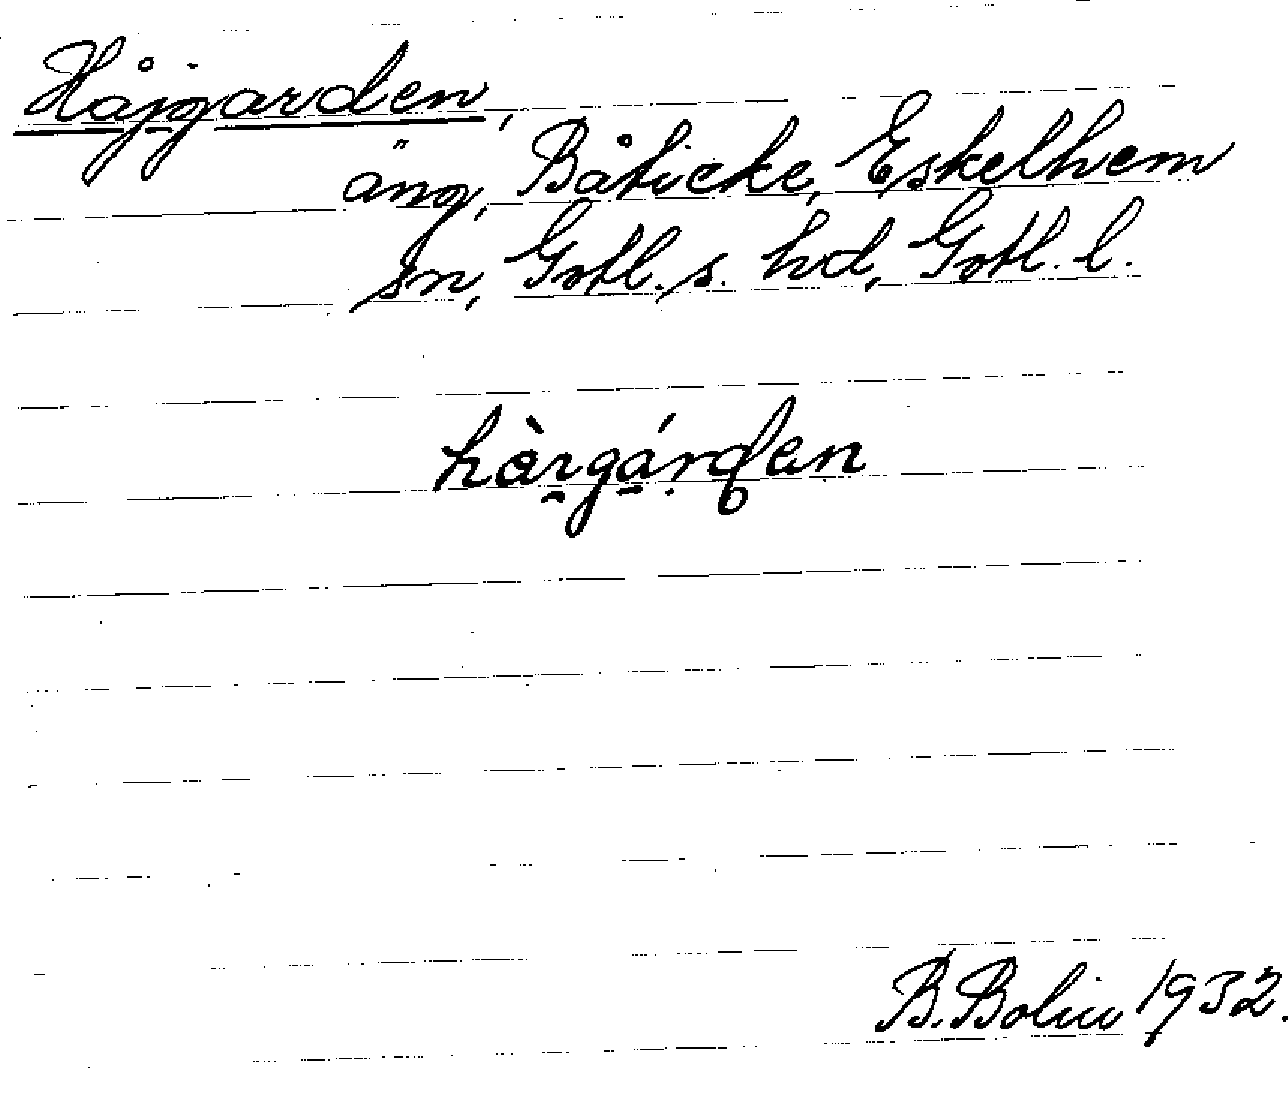 Håjgarden,
äng, Båticke, Eskelhem
sn, Gotl. s. hd, Gotl. l.
B. Bolin 1932.